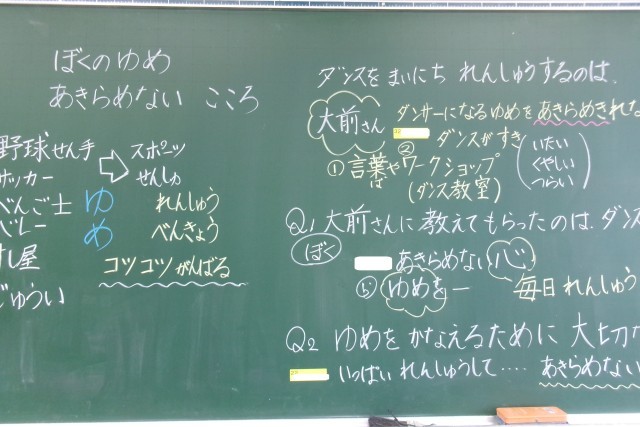 ぼくのゆめ
あきらめない こころ
野球せん手
サッカー
べんご士
バレー
すし屋
じゅうい
スポーツ
せんしゅ
ゆめ
れんしゅう
べんきょう
コツコツがんばる
ダンスを まいにち れんしゅうするのは、
大前さん
ダンサーになるゆめを あきらめきれな
② ダンスがすき
① 言葉やワークショップ
は
(ダンス教室)
いたい
くやしい
つらい
Q1 大前さんに教えてもらったのは、ダンス
ぼく
あきらめない心
ゆめを一
毎日れんしゅう
Q2 ゆめを かなえるために 大切な
いっぱい れんしゅうして‥‥ あきらめない